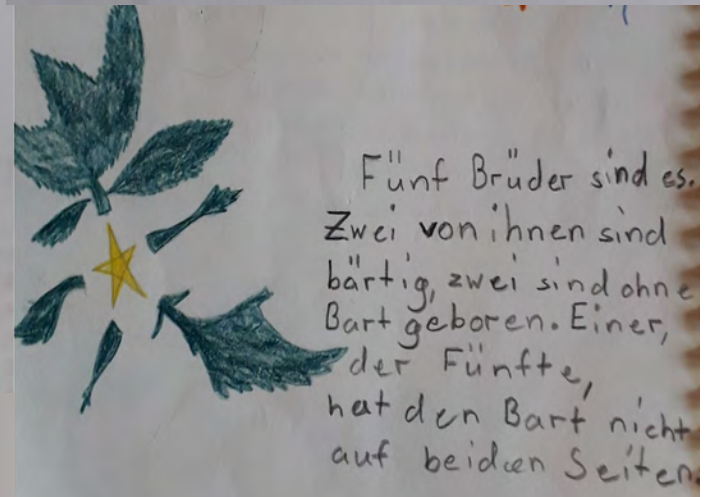 Fünf Brüder sind es.
Zwei von ihnen sind
bärtig, zwei sind ohne
Bart geboren. Einer,
der Fünfte,
hat den Bart nicht
auf beiden Seiten.